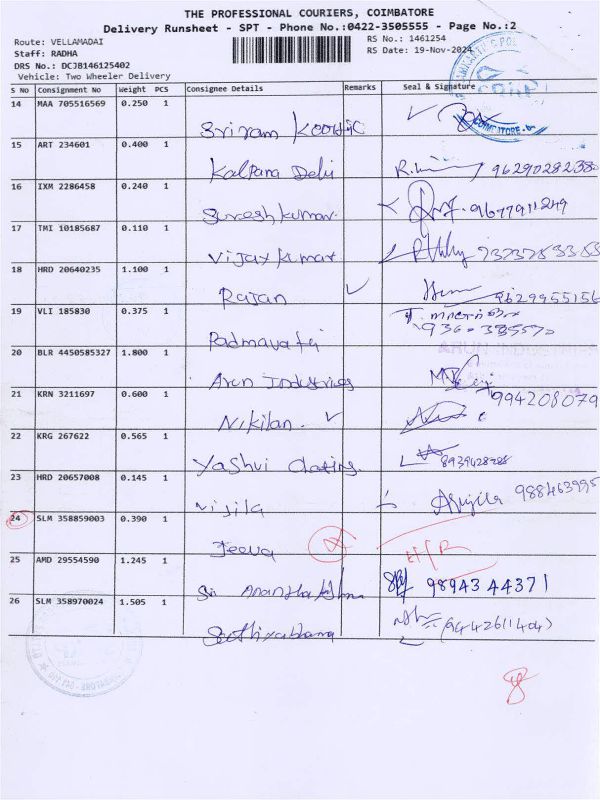 THE PROFESSIONAL COURIERS, COIMBATORE
Delivery Runsheet - SPT - Phone No.:0422-3505555 - Page No.:2
Route: VELLAMADAI
RS No.: 1461254
Staff: RADHA
RS Date: 19-Nov-2024
DRS No.: DCJB146125402
Vehicle: Two Wheeler Delivery
S No Consignment No Weight PCS Consignee Details Remarks Seal & Signature
14 MAA 705516569 0.250 1
Sriram
COIMBATORE
15 ART 234601 0.400 1
Kalpana Devi 96290282380
16 IXM 2286458 0.240 1
Sureshkumar. 9677911249
17 TMI 10185687 0.110 1
Vijay Kumar
18 HRD 20640235 1.100 1
Rajan 9629955156
19 VLI 185830 0.375 1
Padmavathi
20 BLR 4450585327 1.800 1
Arun Industries
21 KRN 3211697 0.600 1
Nikilan. 994208079
22 KRG 267622 0.565 1
Yashvi
23 HRD 20657008 0.145 1
Nijila 988463995
24 SLM 358859003 0.390 1
Jeeva
25 AMD 29554590 1.245 1
Sri 9894344371
26 SLM 358970024 1.505 1
(9442611404)